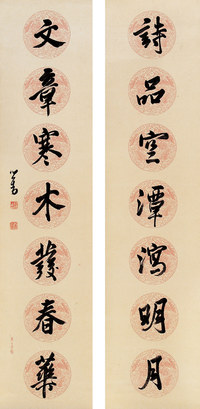 詩品空潭瀉明月
文章寒木發春華
心畬